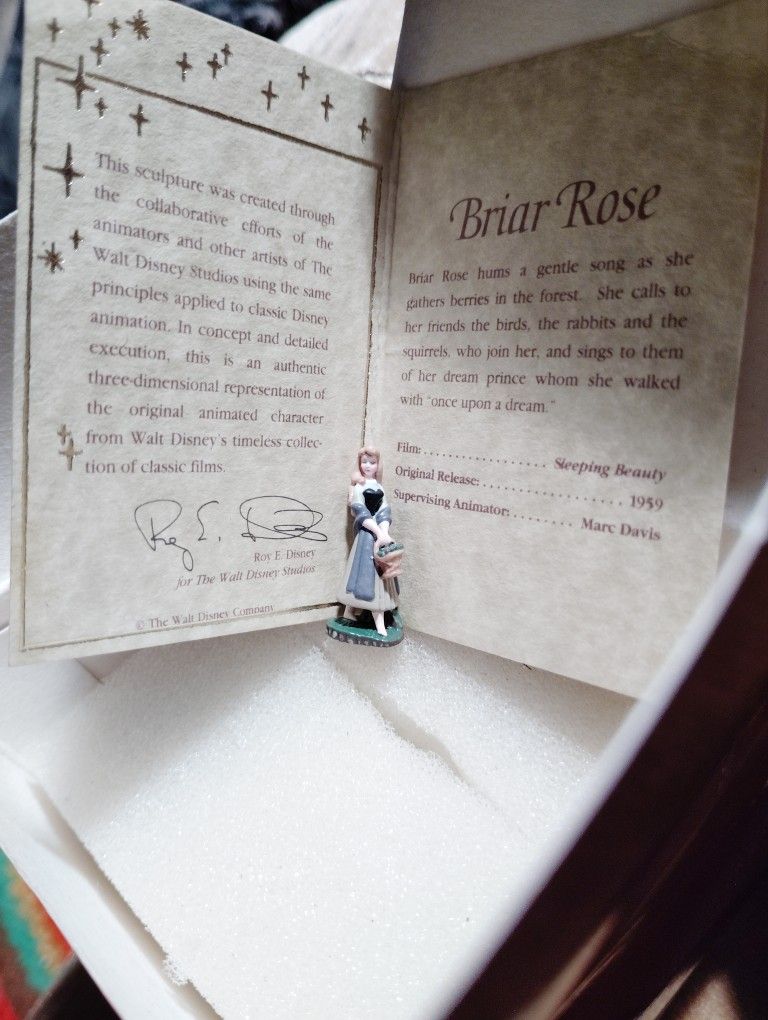 This sculpture was created through
the collaborative efforts of the
animators and other artists of The
Walt Disney Studios using the same
principles applied to classic Disney
animation. In concept and detailed
execution, this is an authentic
three-dimensional representation of
the original animated character
from Walt Disney's timeless collec-
tion of classic films.
Roy E. Disney
Roy E. Disney
for The Walt Disney Studios
© The Walt Disney Company
Briar Rose
Briar Rose hums a gentle song as she
gathers berries in the forest. She calls to
her friends the birds, the rabbits and the
squirrels, who join her, and sings to them
of her dream prince whom she walked
with "once upon a dream."
Film: .................. Sleeping Beauty
Original Release: ..................... 1959
Supervising Animator: ........ Marc Davis